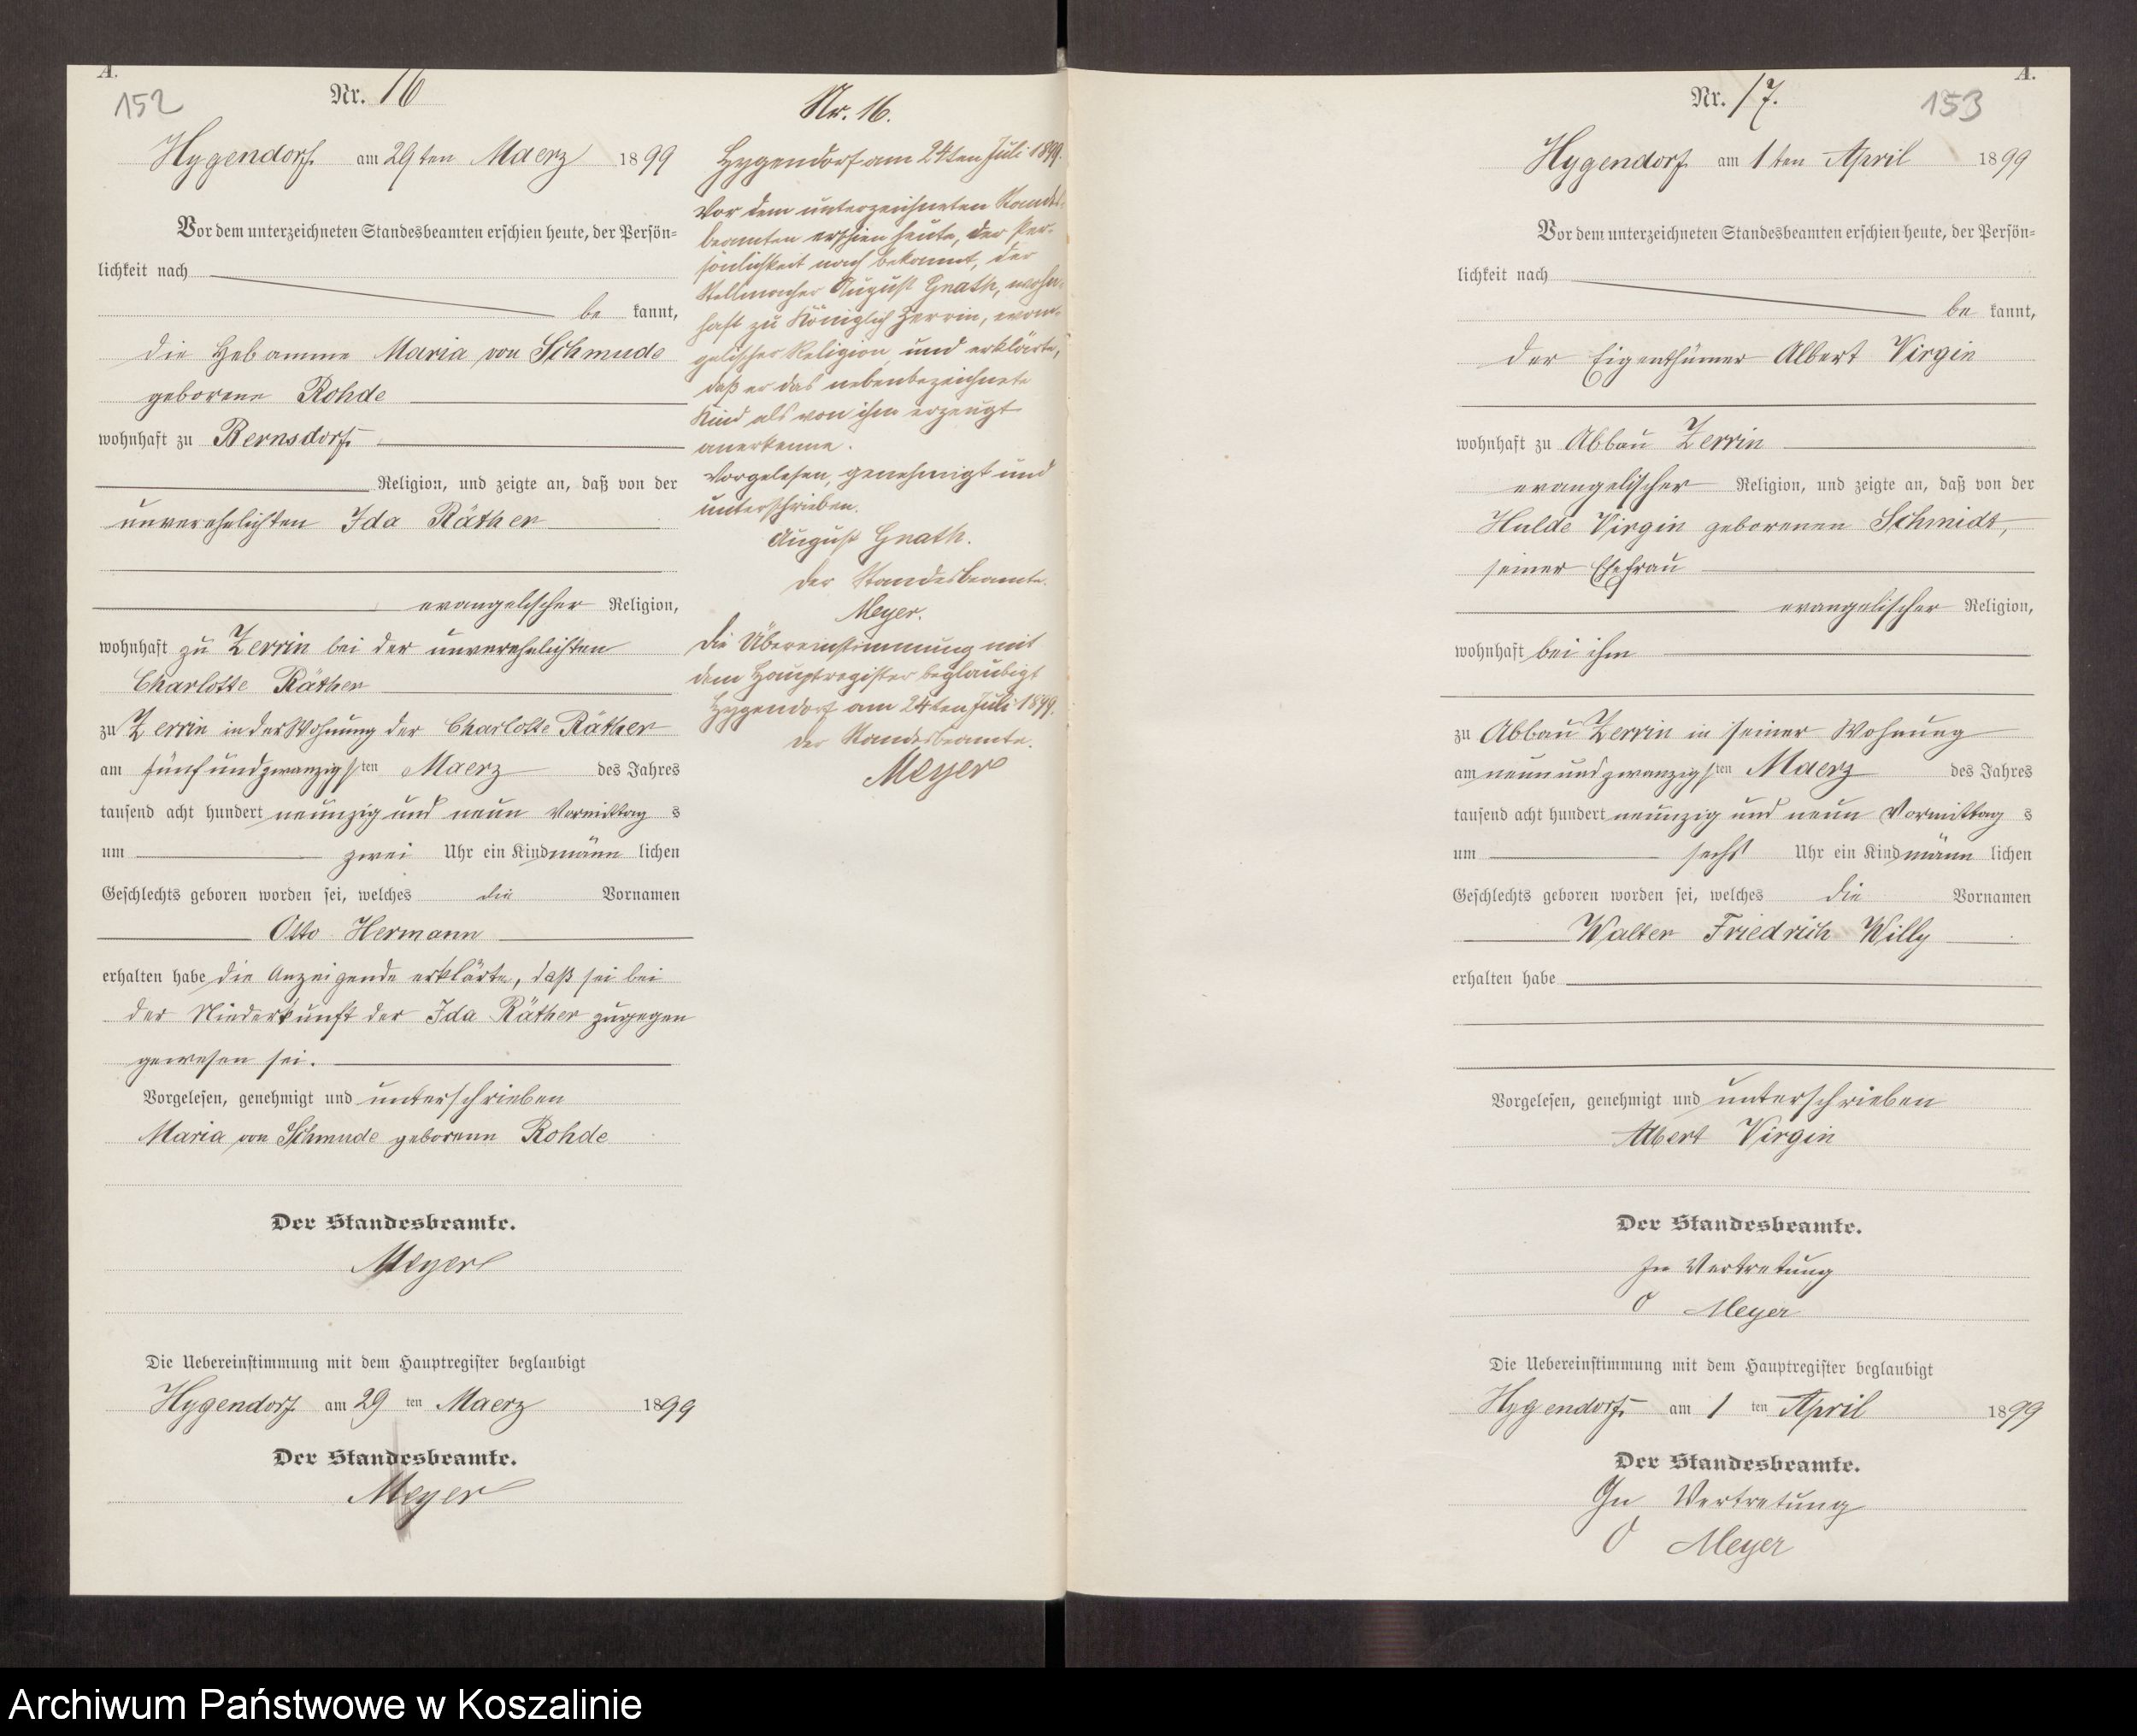 A.
152
Nr. 16
Hygendorf am 29ten Maerz 1899
Vor dem unterzeichneten Standesbeamten erschien heute, der Persön=
lichkeit nach
be kannt,
die Hebamme Maria von Schmude
geborene Rohde
wohnhaft zu Bernsdorf
Religion, und zeigte an, daß von der
unverehelichten Ida Räther
evangelischer Religion,
wohnhaft zu Zerrin bei der unverehelichten
Charlotte Räther
zu Zerrin in der Wohnung der Charlotte Räther
am fünfundzwanzigsten Maerz des Jahres
tausend acht hundert neunzig und neun Vormittag s
um zwei Uhr ein Kind männ lichen
Geschlechts geboren worden sei, welches die Vornamen
Otto Hermann
erhalten habe die Anzeigende erklärte, daß sei bei
der Niederkunft der Ida Räther zugegen
gewesen sei.
Vorgelesen, genehmigt und unterschrieben
Maria von Schmude geborene Rohde
Der Standesbeamte.
Meyer
Die Uebereinstimmung mit dem Hauptregister beglaubigt
Hygendorf am 29 ten Maerz 1899
Der Standesbeamte.
Meyer
Nr. 16.
Hygendorf am 24ten Juli 1899.
Vor dem unterzeichneten Standes-
beamten erschien heute, der Per-
sönlichkeit nach bekannt, der
Stellmacher August Gnath, wohn-
haft zu Königlich Zerrin, evan-
gelischer Religion, und erklärte,
daß er das nebenbezeichnete
Kind als von ihm erzeugt
anerkenne.
Vorgelesen, genehmigt und
unterschrieben.
August Gnath.
Der Standesbeamte.
Meyer.
Die Übereinstimmung mit
dem Hauptregister beglaubigt
Hygendorf am 24ten Juli 1899.
Der Standesbeamte.
Meyer
A.
Nr. 17.
153
Hygendorf am 1ten April 1899
Vor dem unterzeichneten Standesbeamten erschien heute, der Persön=
lichkeit nach
be kannt,
der Eigenthümer Albert Virgin
wohnhaft zu Abbau Zerrin
evangelischer Religion, und zeigte an, daß von der
Hulde Virgin geborenen Schmidt,
seiner Ehefrau
evangelischer Religion,
wohnhaft bei ihm
zu Abbau Zerrin in seiner Wohnung
am neunundzwanzigsten Maerz des Jahres
tausend acht hundert neunzig und neun Vormittag s
um sechs Uhr ein Kind männ lichen
Geschlechts geboren worden sei, welches die Vornamen
Walter Friedrich Willy
erhalten habe
Vorgelesen, genehmigt und unterschrieben
Albert Virgin
Der Standesbeamte.
In Vertretung
O Meyer
Die Uebereinstimmung mit dem Hauptregister beglaubigt
Hygendorf am 1 ten April 1899
Der Standesbeamte.
In Vertretung
O Meyer
Archiwum Państwowe w Koszalinie